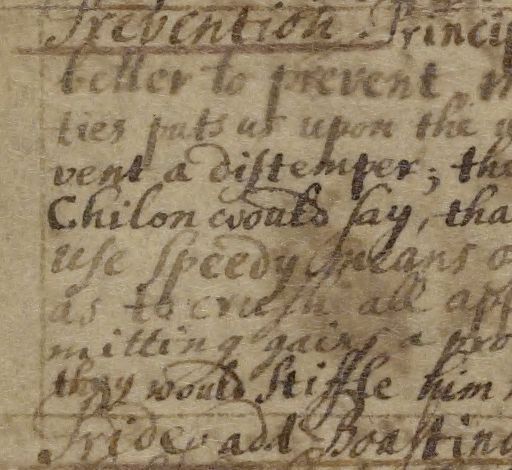 Prevention. Princip
better to prevent m
ties puts us upon the
vent a distemper; the
Chilon would say, tha
use speedy means
as to crush all app
mitting gains a pro
they would stifle him
Pride. add Boasting